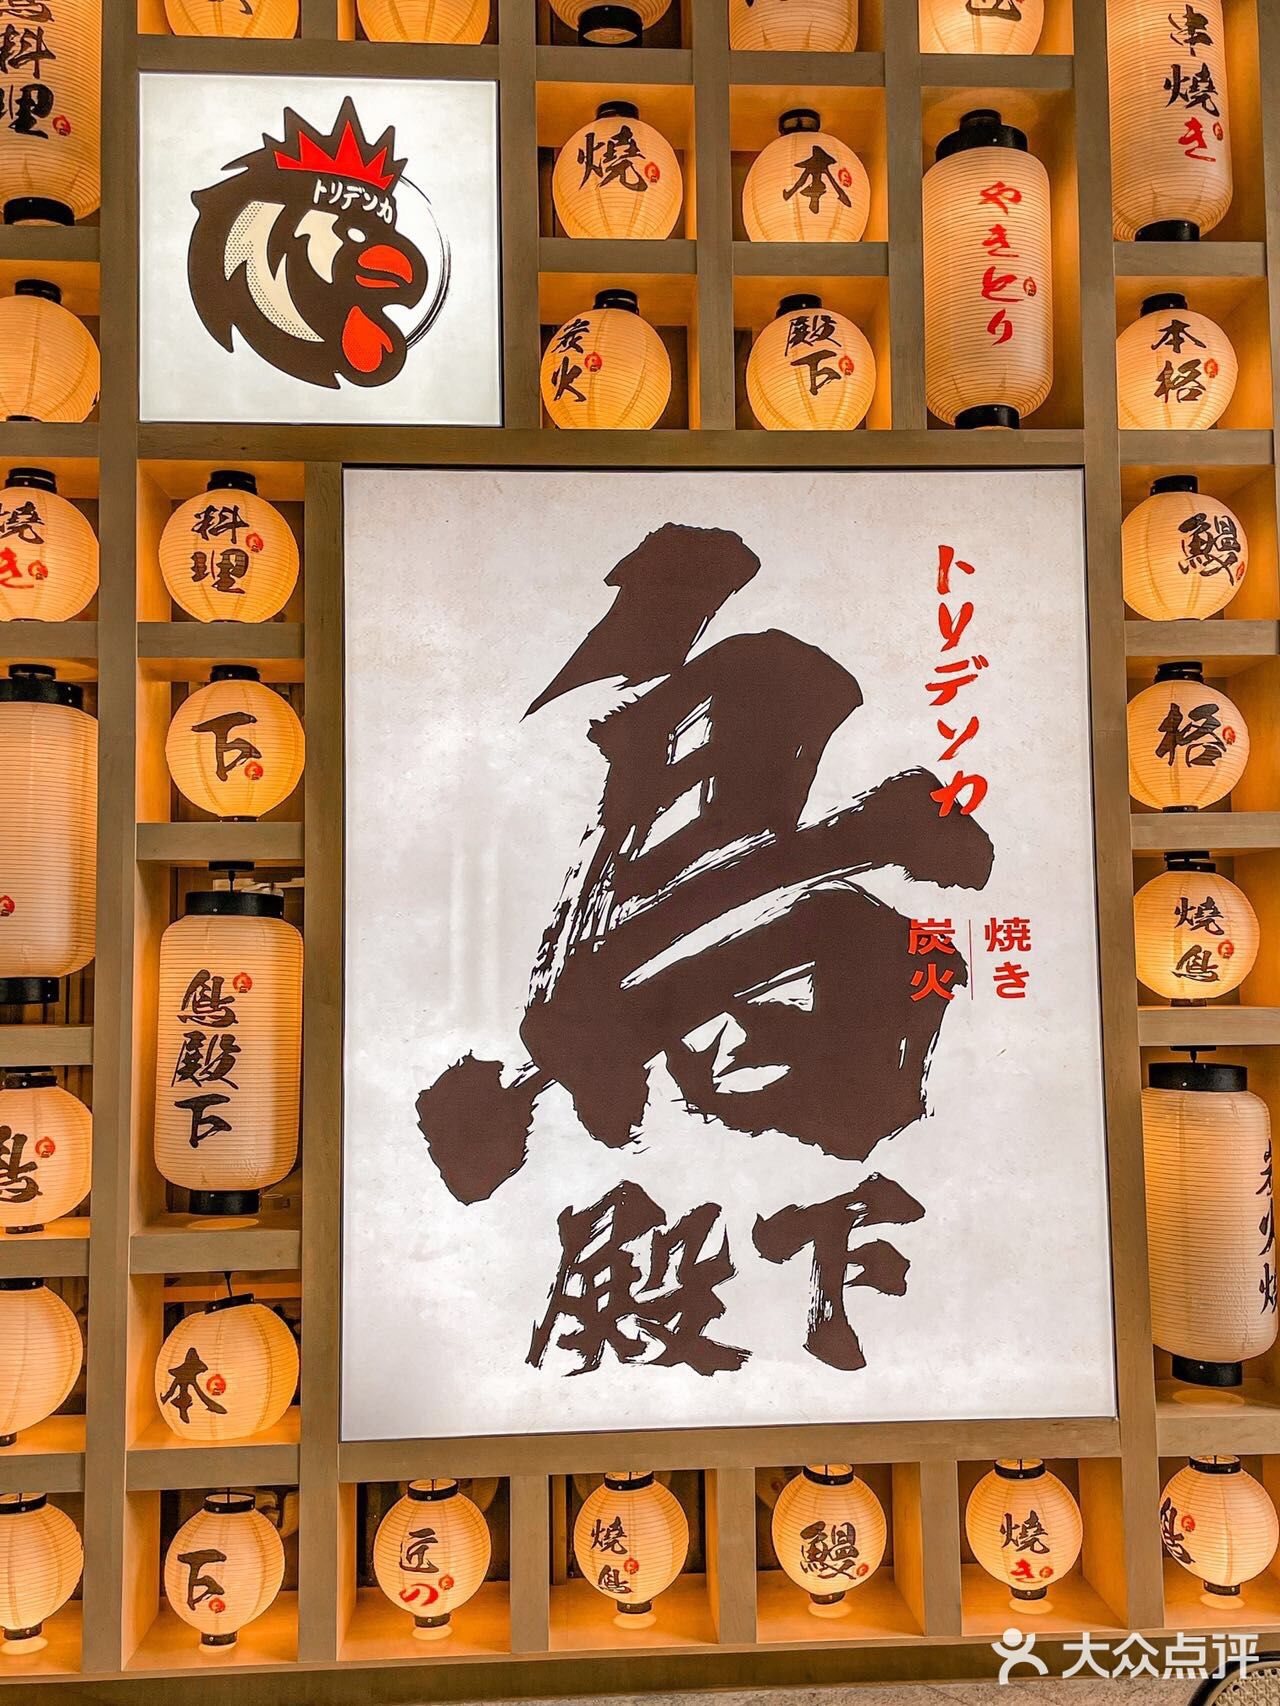 鳥料理
串燒き
トリデンカ
燒
本
やきとり
炭火
殿下
本格
燒き
料理
鰻
下
格
鳥殿下
燒鳥
鳥
本
トリデンカ
炭火
焼き
鳥
殿下
炭火燒
下
匠の
燒鳥
鰻
燒き
鳥
大众点评